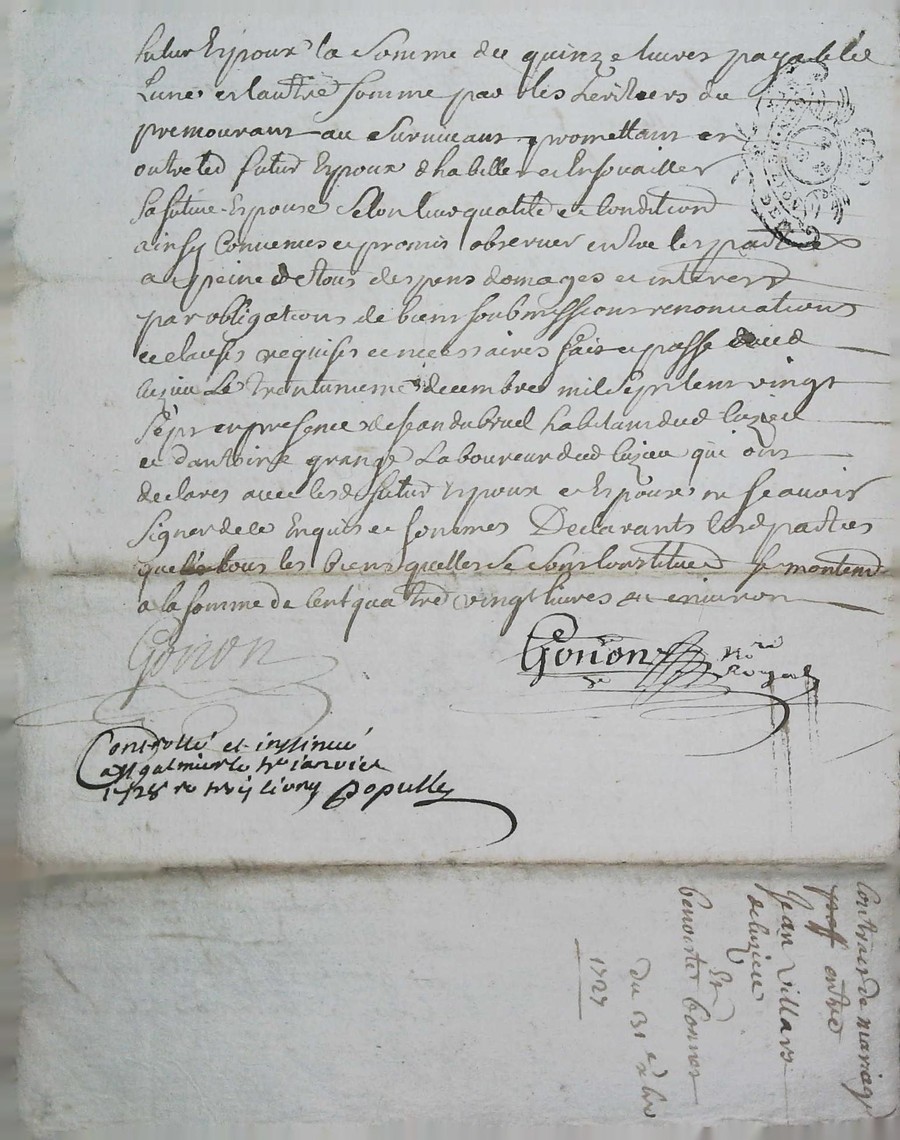 futur Espoux la Somme de quinze livres payable
Lune et lautre Somme par les heritiers du
premourant au Survivant promettant en
outre led futur Espoux dhabiller et Enjoualler
Sa future Espouse Selon leur quallité et Condition
ainsy Convenus et promis observer entre les parties
a peine de tous despens domages et interests
par obligations de biens soubmissions renonciations
et clauses requises et necessaires fait et passé aud
Luzieu Le trantunieme decembre mil Sept Cent vingt
Sept en presence de Jean dubrueil habitant dud luzieu
et dantoine grange Laboureur dud luzieu qui ont
declares avec lesd futur Espoux et Espouse ne Scavoir
Signer de ce Enquis et sommes Declarants lesd parties
que tous les biens quelles Se sont Constitues Se montent
a la somme de Cent quatre vingt livres ou environ
Gonon
Gonon Nore Royal
Controllé et insinué
a St galmier le janvier
1728 re troy livres Populle
DE LYON
Contract de mariage
entre
Jean Villars
de luzieu
Et
benoiste bonnet
du 31 e xbre
1727